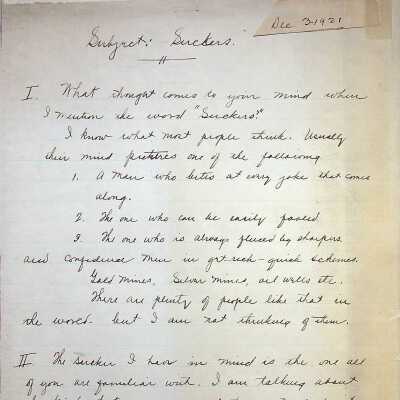 Dec 3-1921
Subject: Suckers.
I. What thought comes to your mind when
I mention the word "Suckers?"
I know what most people think. Usually
their mind pictures one of the following
1. A man who bites at every joke that comes
along.
2. The one who can be easily fooled
3. The one who is always fleeced by sharpers
and confidence men in get-rich-quick schemes.
Gold Mines, Silver Mines, oil wells etc.
There are plenty of people like that in
the world - but I am not thinking of them.
II The sucker I have in mind is the one all
of you are familiar with. I am talking about